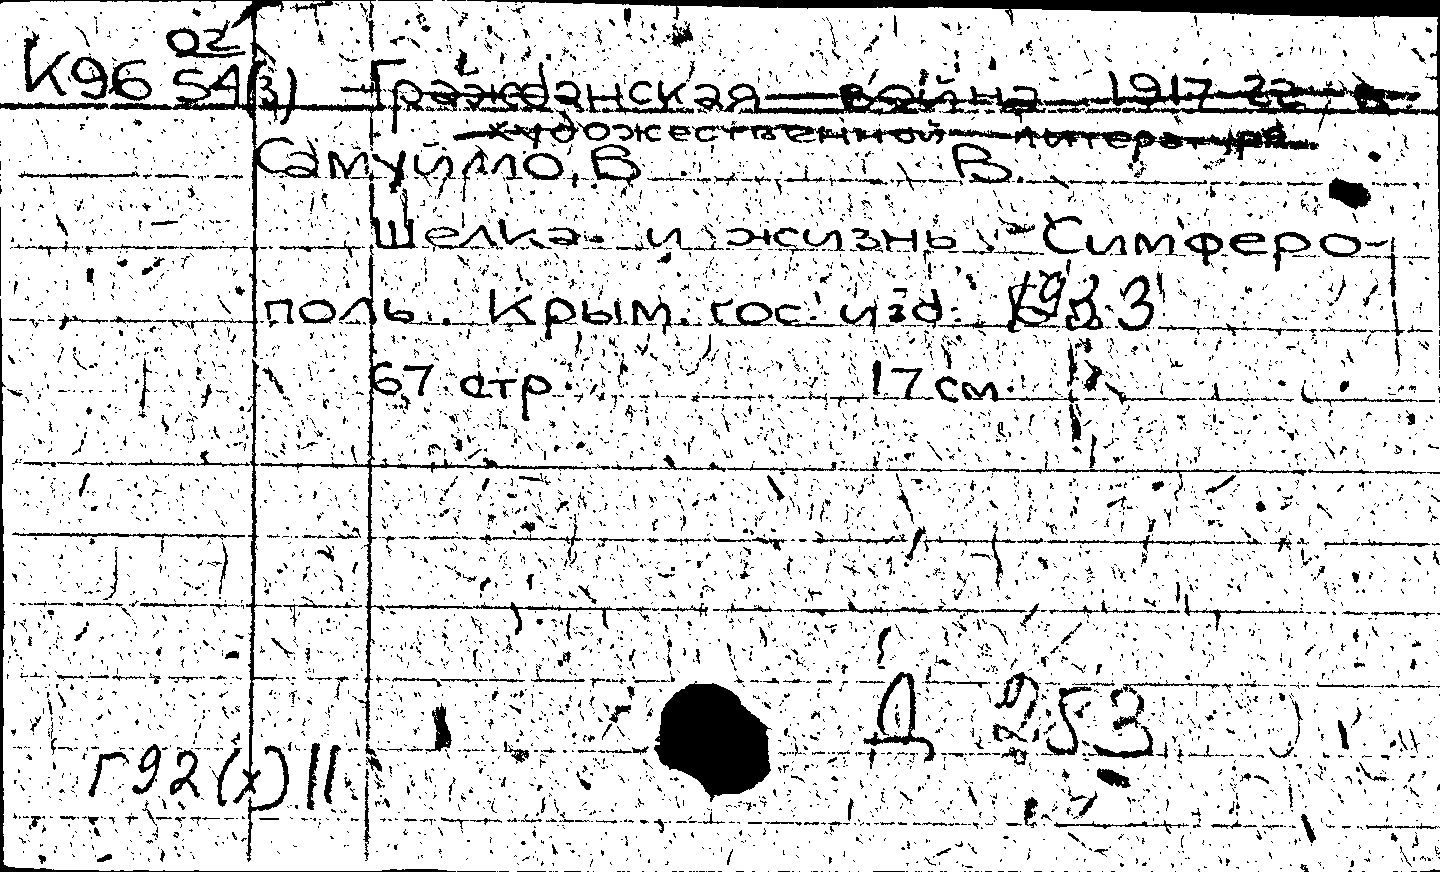 02
К96 54(3) - Гражданская война 1917-22 в
художественной литературе
Самуйлло, В. В.
Шелка и жизнь. - Симферо-
поль. Крым. гос. изд. 1923
67 стр. 17 см.
Д 253
Г92(х)II